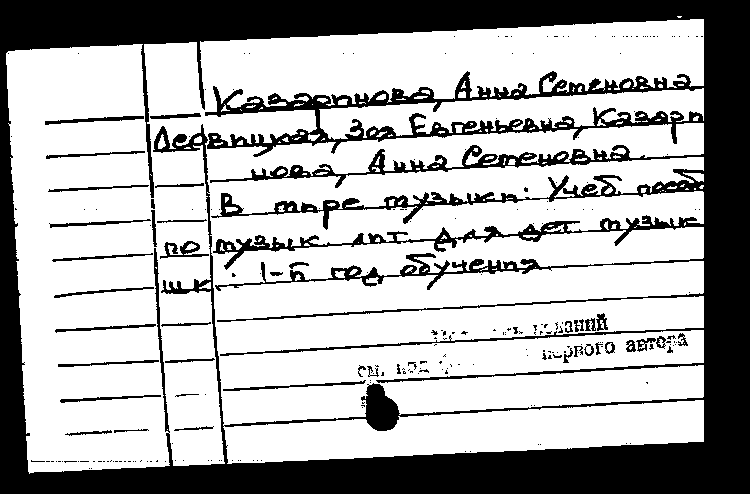 Казаринова, Анна Семеновна
Левицкая, Зоя Евгеньевна, Казари
нова, Анна Семеновна.
В мире музыки: Учеб. пособ
по музык. лит. для дет. музык
шк.: 1-й год обучения
изданий
см. под первого автора